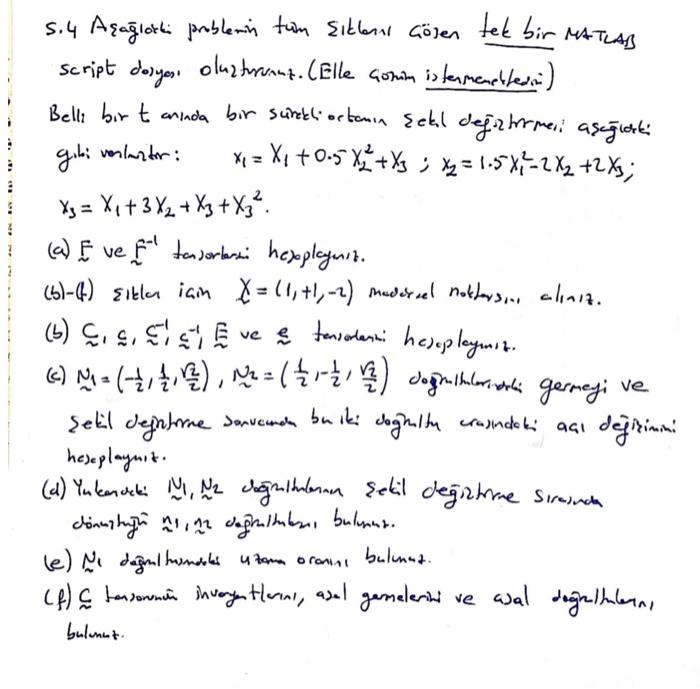 5.4 Aşağıdaki problemin tüm şıklarını çözen tek bir MATLAB
script dosyası oluşturunuz. (Elle çözüm istenmemektedir)
Belli bir t anında bir sürekli ortamın şekil değiştirmesi aşağıdaki
gibi verilmiştir: x₁ = X₁ + 0.5 X₂² + X₃ ; x₂ = 1.5 X₁² - 2X₂ + 2X₃;
x₃ = X₁ + 3X₂ + X₃ + X₃².
(a) F ve F⁻¹ tensörlerini hesaplayınız.
(b)-(f) şıkları için X = (1, +1, -2) maddesel noktasını alınız.
(b) C, c, C⁻¹, c⁻¹, E ve e tensörlerini hesaplayınız.
(c) N₁ = (-1/2, 1/2, √2/2), N₂ = (1/2, -1/2, √2/2) doğrultularındaki germeyi ve
şekil değiştirme sonucunda bu iki doğrultu arasındaki açı değişimini
hesaplayınız.
(d) Yukarıdaki N₁, N₂ doğrultularının şekil değiştirme sırasında
dönüştüğü n₁, n₂ doğrultularını bulunuz.
(e) N₁ doğrultusundaki uzama oranını bulunuz.
(f) C tensörünün invaryantlarını, asal germelerini ve asal doğrultularını
bulunuz.